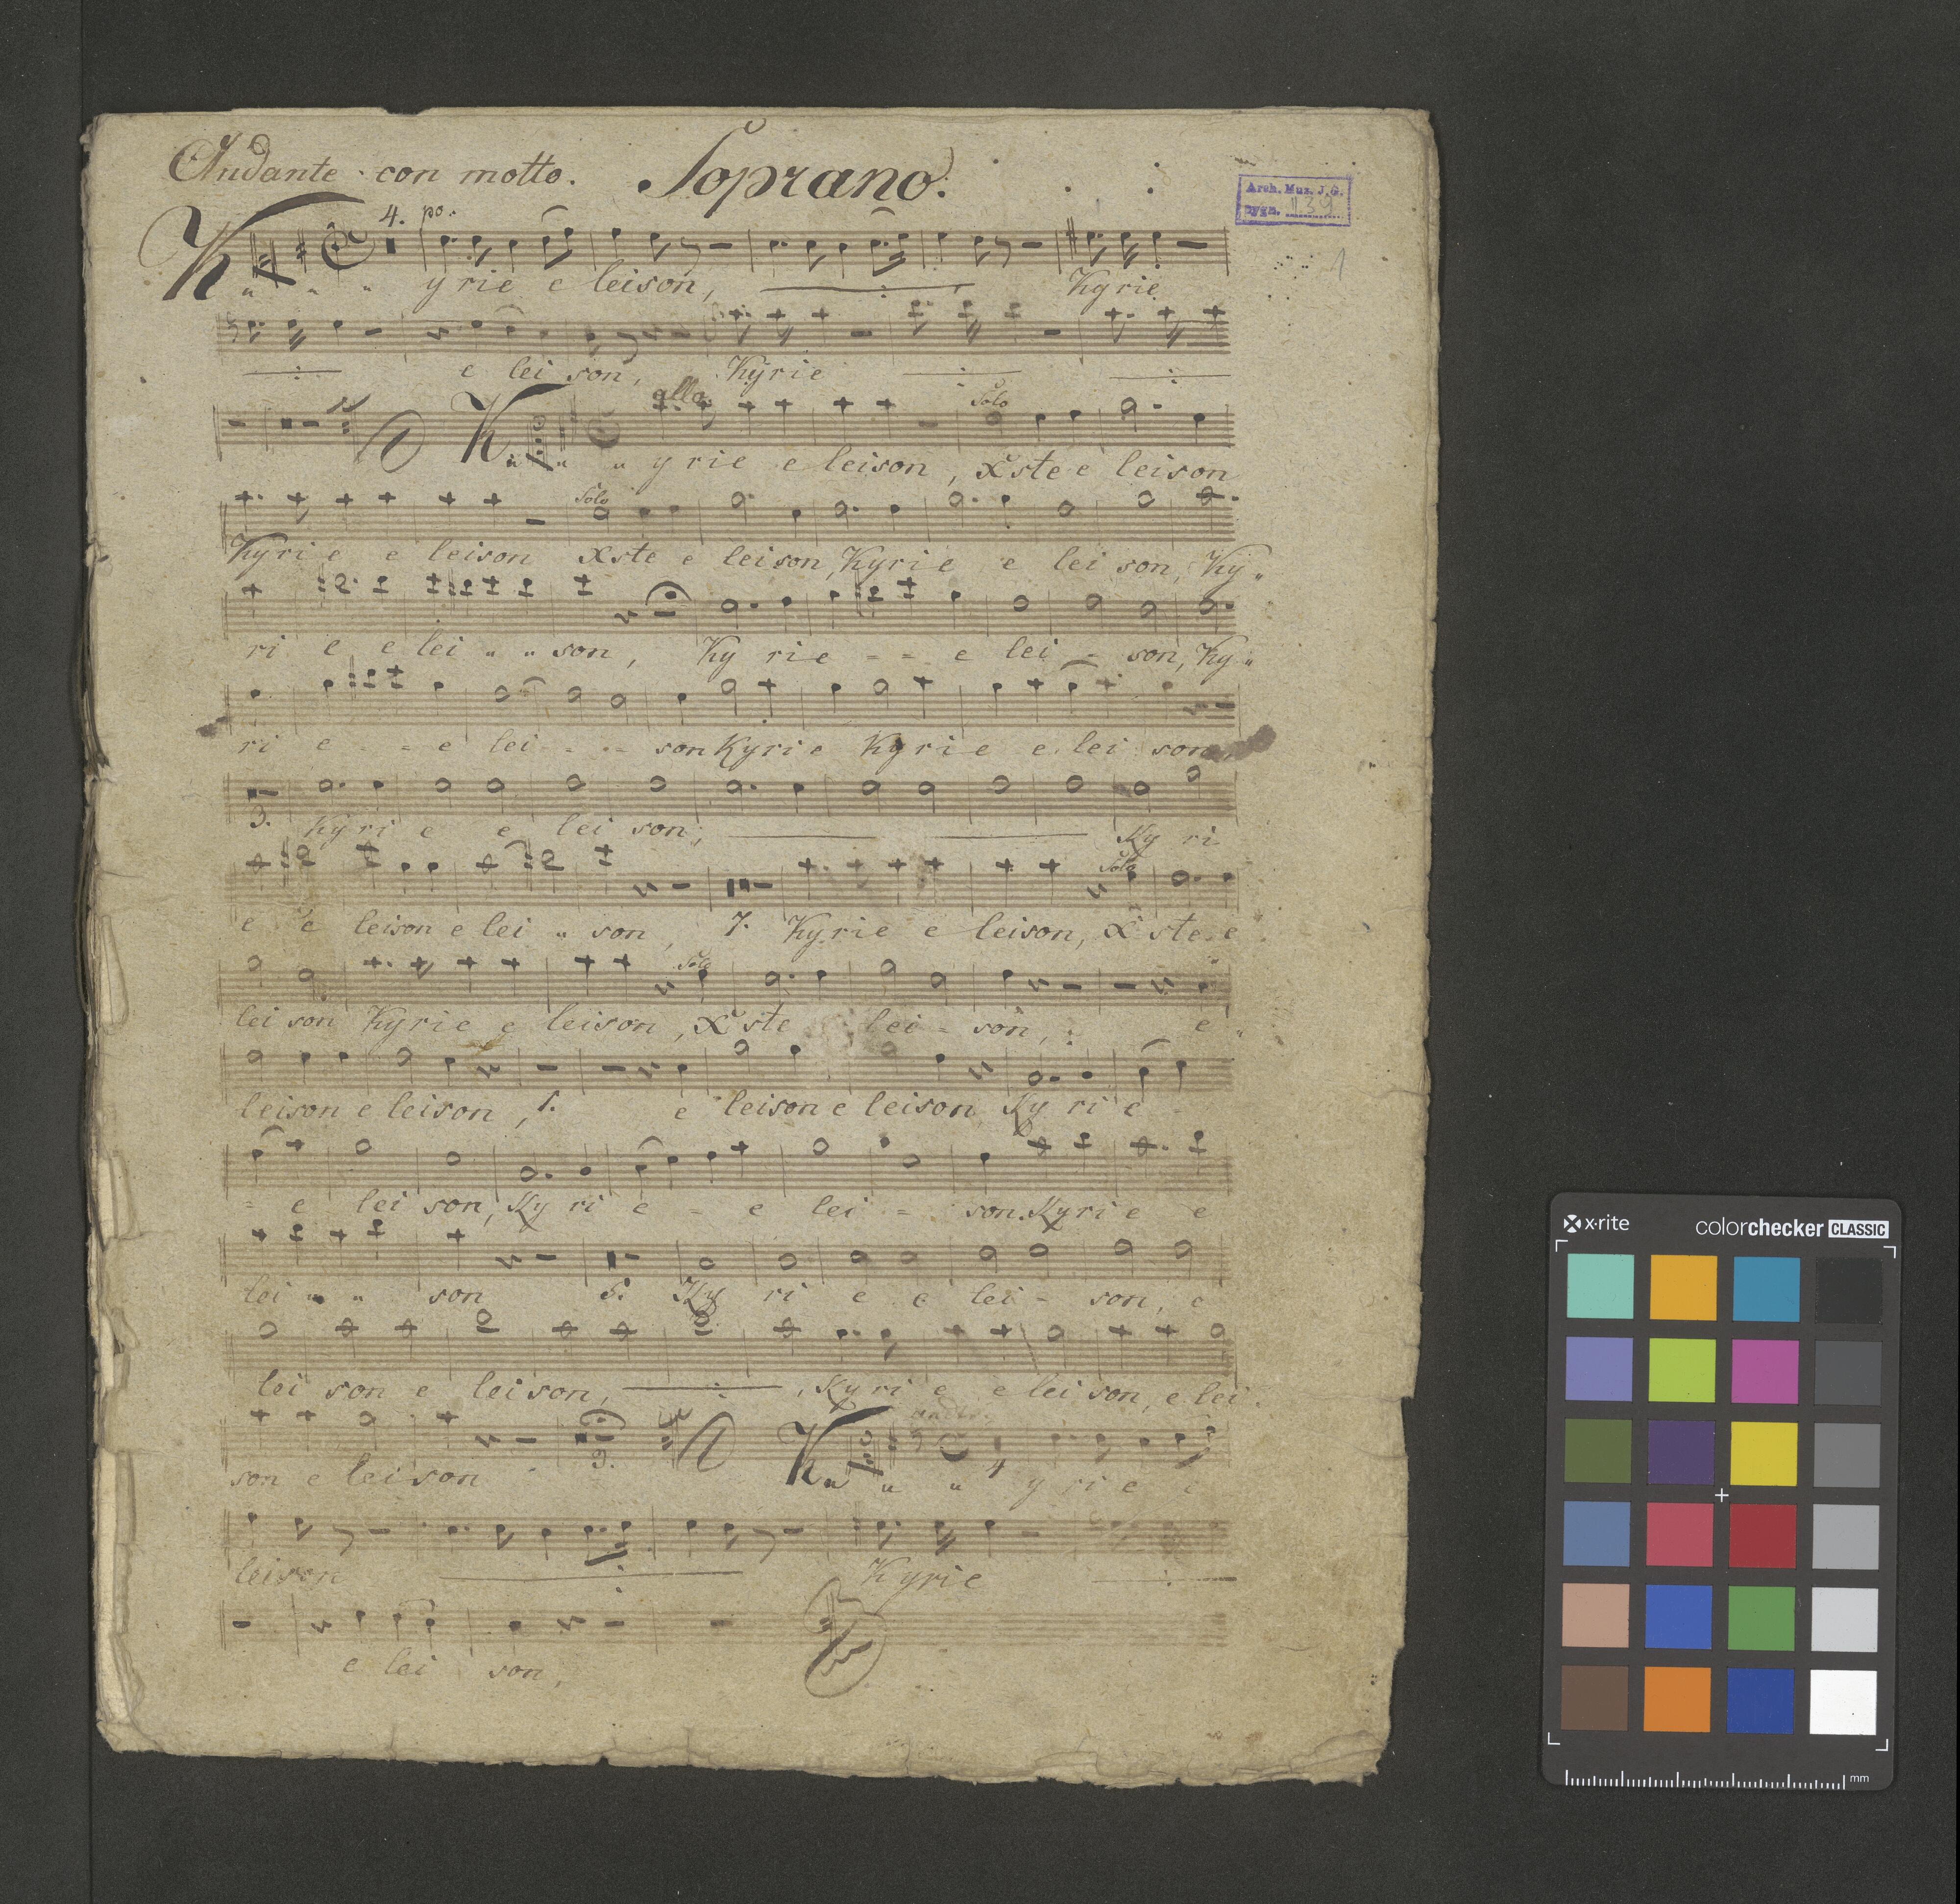 Andante con motto. Soprano.
Arch. Muz. J.G.
sygn. 139
1
4. po.
Kyrie e leison, Kyrie
e lei son, Kyrie
allo. Solo
Kyrie e leison, Xste e leison
Solo
Kyrie e leison Xste e leison, Kyrie e lei son, Ky„
ri e e lei „ „ son, Ky rie - - e lei - son, Ky„
ri e - - e lei - - - son Kyrie Kyrie e lei son
3. Kyri e e lei son, Ky ri
Solo
e e leison e lei „ son, 7. Kyrie e leison, Xste e
Solo
lei son Kyrie e leison, Xste lei - son, e„
leison e leison, 1. e leison e leison Ky ri e
- e lei son, Ky ri e - e lei - son Kyrie e
lei „ „ son 5. Ky ri e e lei - son, e
lei son e leison, Kyrie e leison, e lei.
son e leison 3. 4 Kyrie e
leison Kyrie
e lei son,
x·rite colorchecker CLASSIC
mm